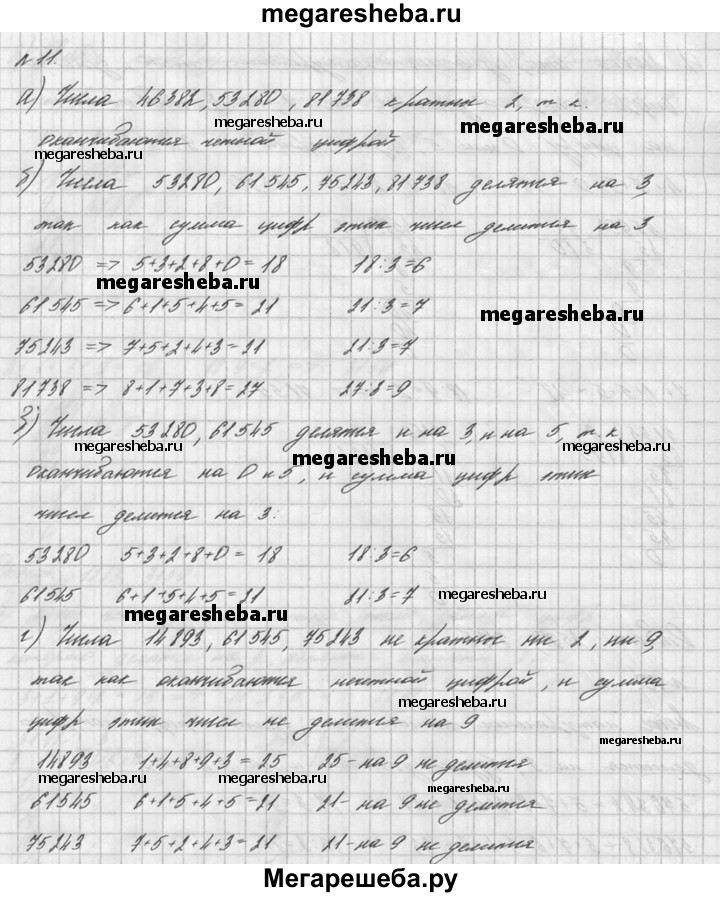 megaresheba.ru
№11.
а) Числа 46382, 53280, 81738 кратны 2, т. к.
megaresheba.ru megaresheba.ru
оканчиваются четной цифрой
megaresheba.ru
б) Числа 53280, 61545, 75243, 81738 делятся на 3,
так как сумма цифр этих чисел делится на 3
53280 => 5+3+2+8+0=18 18:3=6
megaresheba.ru
61545 => 6+1+5+4+5=21 21:3=7
megaresheba.ru
75243 => 7+5+2+4+3=21 21:3=7
81738 => 8+1+7+3+8=27 27:3=9
в) Числа 53280, 61545 делятся и на 3, и на 5, т. к
megaresheba.ru megaresheba.ru megaresheba.ru
оканчиваются на 0 и 5, и сумма цифр этих
чисел делится на 3:
53280 5+3+2+8+0=18 18:3=6
61545 6+1+5+4+5=21 21:3=7
megaresheba.ru
megaresheba.ru
г) Числа 14893, 61545, 75243 не кратны ни 2, ни 9,
так как оканчиваются нечетной цифрой, и сумма
megaresheba.ru
цифр этих чисел не делится на 9
megaresheba.ru
14893 1+4+8+9+3=25 25-на 9 не делится
megaresheba.ru megaresheba.ru
megaresheba.ru
61545 6+1+5+4+5=21 21-на 9 не делится
75243 7+5+2+4+3=21 21-на 9 не делится
Мегарешеба.ру